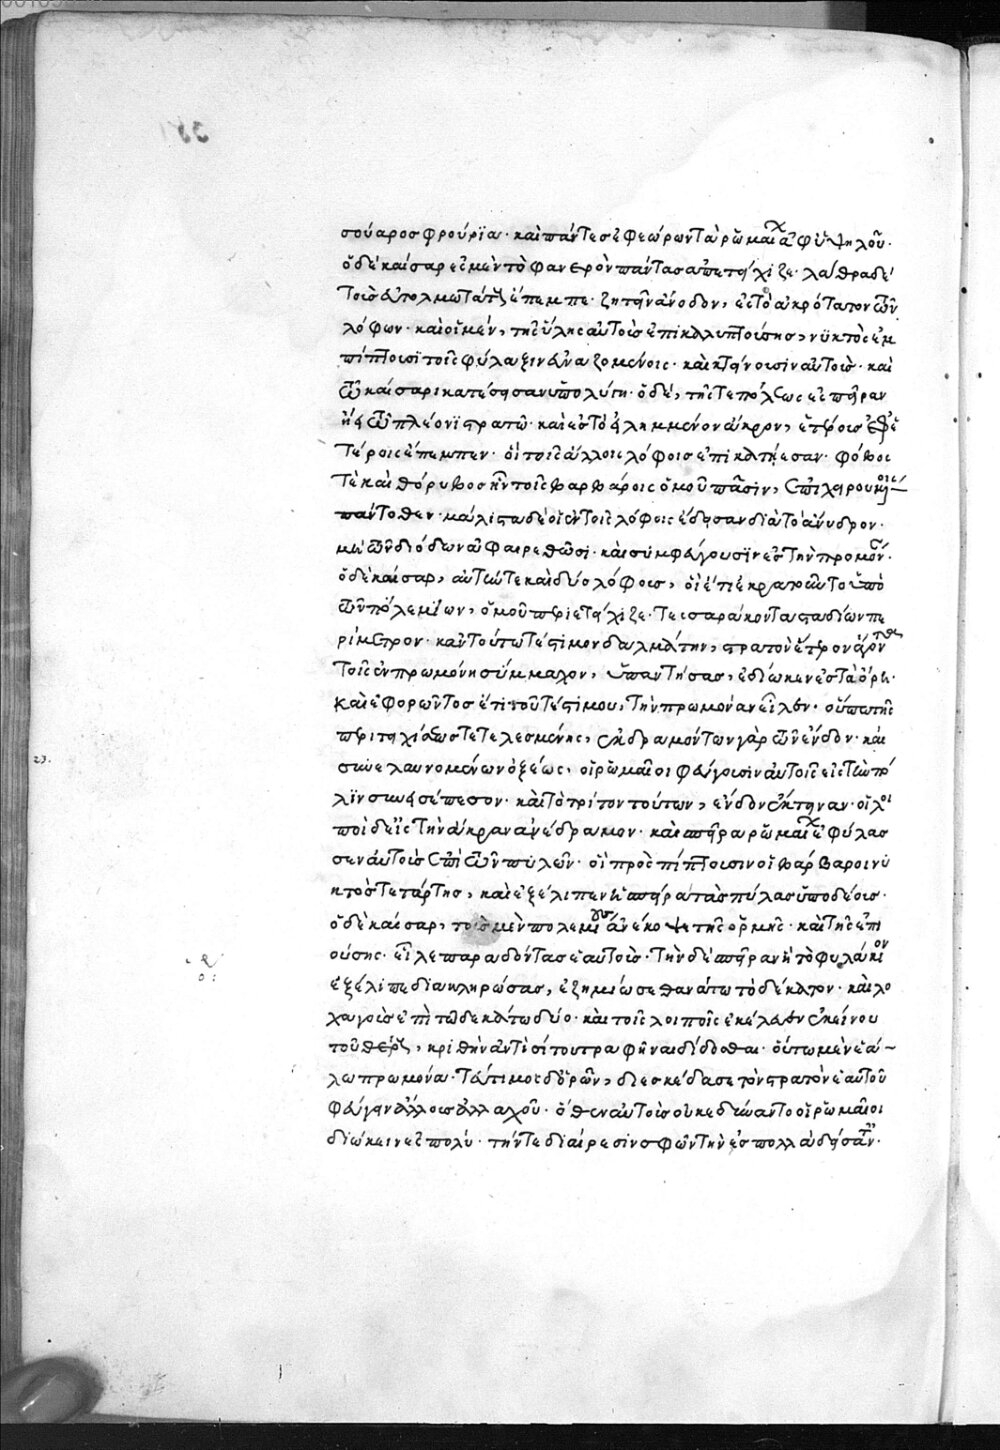 σούαροσ φρούρϊα· καὶ πάντεσ ἐφεώρων τὰ ῥωμαίων ἀφ ὑψηλοῦ.
ὁ δὲ καίσαρ ἐς μὲν τὸ φανερὸν πάντασ ἀπετείχιζε· λάθρα δὲ
τοὺσ εὐτολμωτάτους ἔπεμπε ζητεῖν ἄνοδον, ἐς τὸ ἀκρότατον τῶν
λόφων· καὶ οἱ μὲν, τῆς ὕλης αὐτοὺσ ἐπικαλυπτούσησ, νϋκτὸς ἐμ
πίπτουσι τοῖς φύλαξιν εὐναζομένοις· καὶ κτείνουσιν αὐτοὺσ· καὶ
τῶ καίσαρι κατέσεισαν ὑπὸ λύγη· ὁ δὲ, τῆς τε πόλεως ἐς πεῖραν
ἤει τῶ πλέονϊ στρατῶ· καὶ ἐσ τὸ εἰλημμένον ἄκρον, ἑτέρουσ ἐφ ἑ
τέροις ἔπεμπεν· οἱ τοῖς ἄλλοις λόφοισ ἐπικατήεσαν· φόβος
τὲ καὶ θόρυβοσ ἦν τοῖς βαρβάροις ὁμοῦ πᾶσϊν, ἐπιχειρουμένοις
πάντοθεν· μάλιστα δὲ οἱ ἐν τοῖς λόφοις ἔδεισαν διὰ τὸ ἄνυδρον·
μὴ τῶν διόδων ἀφαιρεθῶσι· καὶ συμφεύγουσϊν ἐσ τὴν προμόναν·
ὁ δὲ καίσαρ, αὐτήν τε καὶ δύο λόφουσ, οἱ ἔτι ἐκρατοῦντο ὑπὸ
τῶν πολεμίων, ὁμοῦ περιετείχιζε· τεσσαράκοντα σταδίων πε
ρίμετρον· κἀν τούτω τέστιμον δαλμάτην, στρατὸν ἕτερον ἄγοντα
τοῖς ἐν πρωμόνη σύμμαχον, ὑπαντήσας, ἐδίωκεν ἐσ τὰ ὄρη·
καὶ ἐφορῶντοσ ἔτι τοῦ τεστίμου, τὴν πρωμόναν εἷλεν· οὔπω τῆς
περιτειχίσεως τετελεσμένης, ἐκδραμόντων γὰρ τῶν ἔνδον· καὶ
συνελαυνομένων ὀξέως, οἱ ῥωμαῖοι φεύγουσιν αὐτοῖς εἰς τὴν πό
λϊν συνεισέπεσον· καὶ τὸ τρίτον τούτων, ἔνδον ἔκτειναν· οἱ λοι
ποὶ δ ἐς τὴν ἄκραν ἀνέδραμον· καὶ σπεῖρα ῥωμαίων ἐφύλασ
σεν αὐτοὺσ ἐπὶ τῶν πυλῶν· οἷ προσπίπτουσιν οἱ βάρβαροι νυ
κτὸσ τετάρτησ, καὶ ἐξέλιπεν ἡ σπεῖρα τὰσ πύλασ ὑπὸ δέους·
ὁ δὲ καίσαρ, τοὺσ μὲν πολεμίους ἀνέκοψε τῆς ὁρμῆς· καὶ τῆς ἐπι
ούσης· εἷλε παραδόντασ ἑαυτοὺσ· τὴν δὲ σπεῖραν ἣ τὸ φυλάκιον
ἐξέλιπε διακληρώσασ, ἐζημίωσε θανάτω τὸ δέκατον· καὶ λο
χαγοὺσ ἐπὶ τῶ δεκάτω δύο· καὶ τοῖς λοιποῖς ἐκέλευεν ἐκείνου
τοῦ θέρους, κριθὴν ἀντὶ σίτου τροφὴν δίδοσθαι· οὕτω μὲν ἑά~
λω πρωμόνα· τέστιμος δ ὁρῶν, διεσκέδασε τὸν στρατὸν ἑαυτοῦ
φεύγειν ἄλλουσ ἀλλαχοῦ· ὅθεν αὐτοὺσ οὐκ ἐδύναντο οἱ ῥωμαῖοι
διώκειν ἐς πολὺ· τήν τε διαίρεσϊν σφῶν τὴν ἐσ πολλὰ δείσαντες·